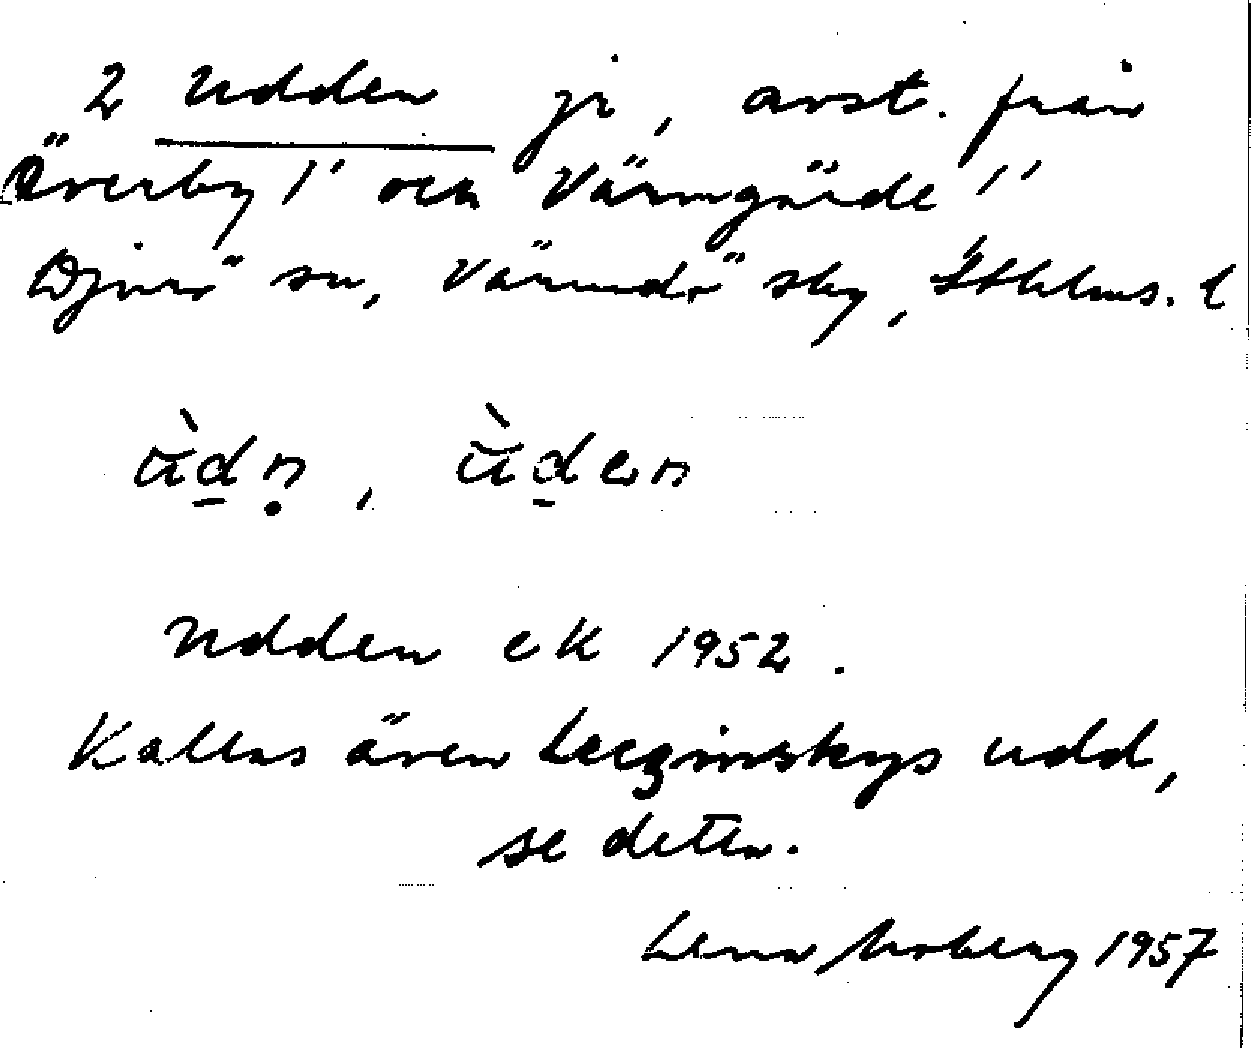 2 Udden jr, avst. från
Överby 1¹ och Värmgärde 1¹
Djurö sn, Värmdö skg, Sthlms. l
ùdṇ, ùden
Udden ek 1952.
Kallas även Leczinskys udd,
se detta.
Lena Moberg 1957